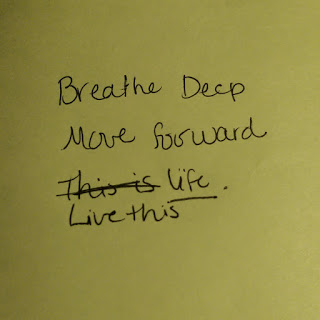 Breathe Deep
Move forward
This is life.
Live this